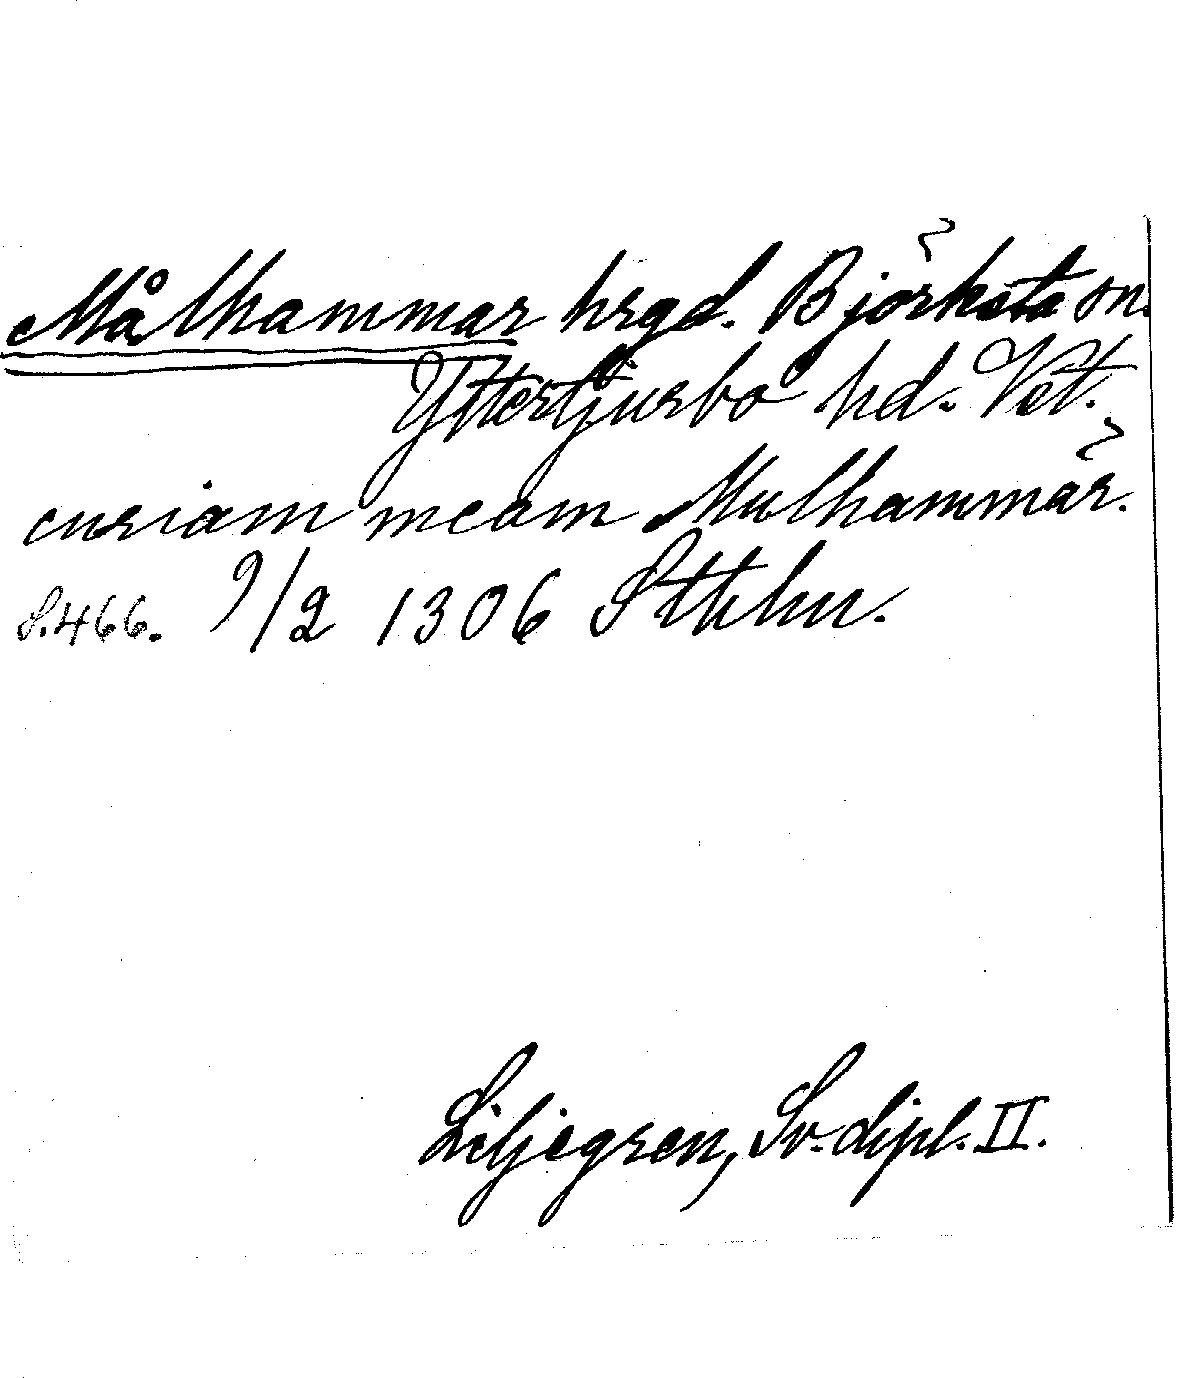 Målhammar hrgd. Björksta sn.
Yttertjurbo hd. Vstm.
curiam meam Mulhammar.
S.466. 9/2 1306 Sthlm.
Liljegren, Sv. dipl. II.